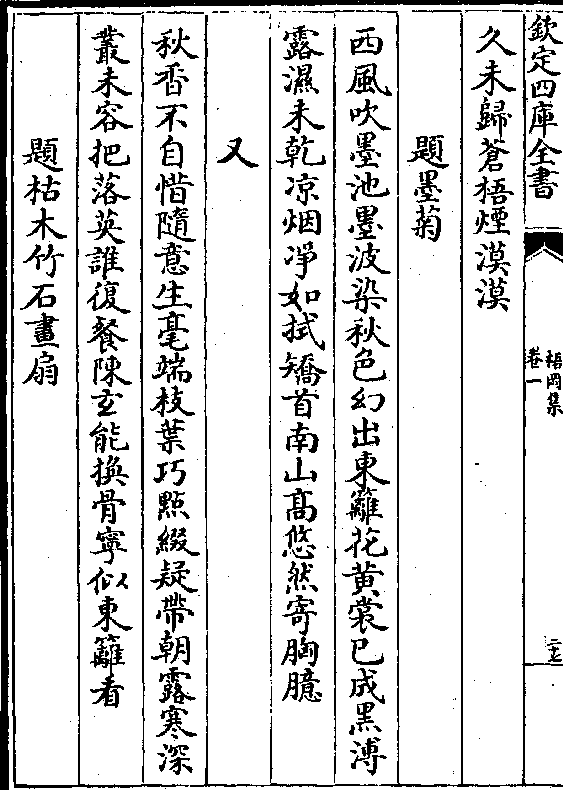 欽定四庫全書
梧岡集
卷一
二十七
久未歸蒼梧煙漠漠
題墨菊
西風吹墨池墨波染秋色幻出東籬花黄裳已成黑溥
露濕未乾凉烟凈如拭矯首南山髙悠然寄胸臆
又
秋香不自惜隨意生毫端枝葉巧㸃綴疑帶朝露寒深
叢未容把落英誰復餐陳玄能換骨寧似東籬看
題枯木竹石畫扇